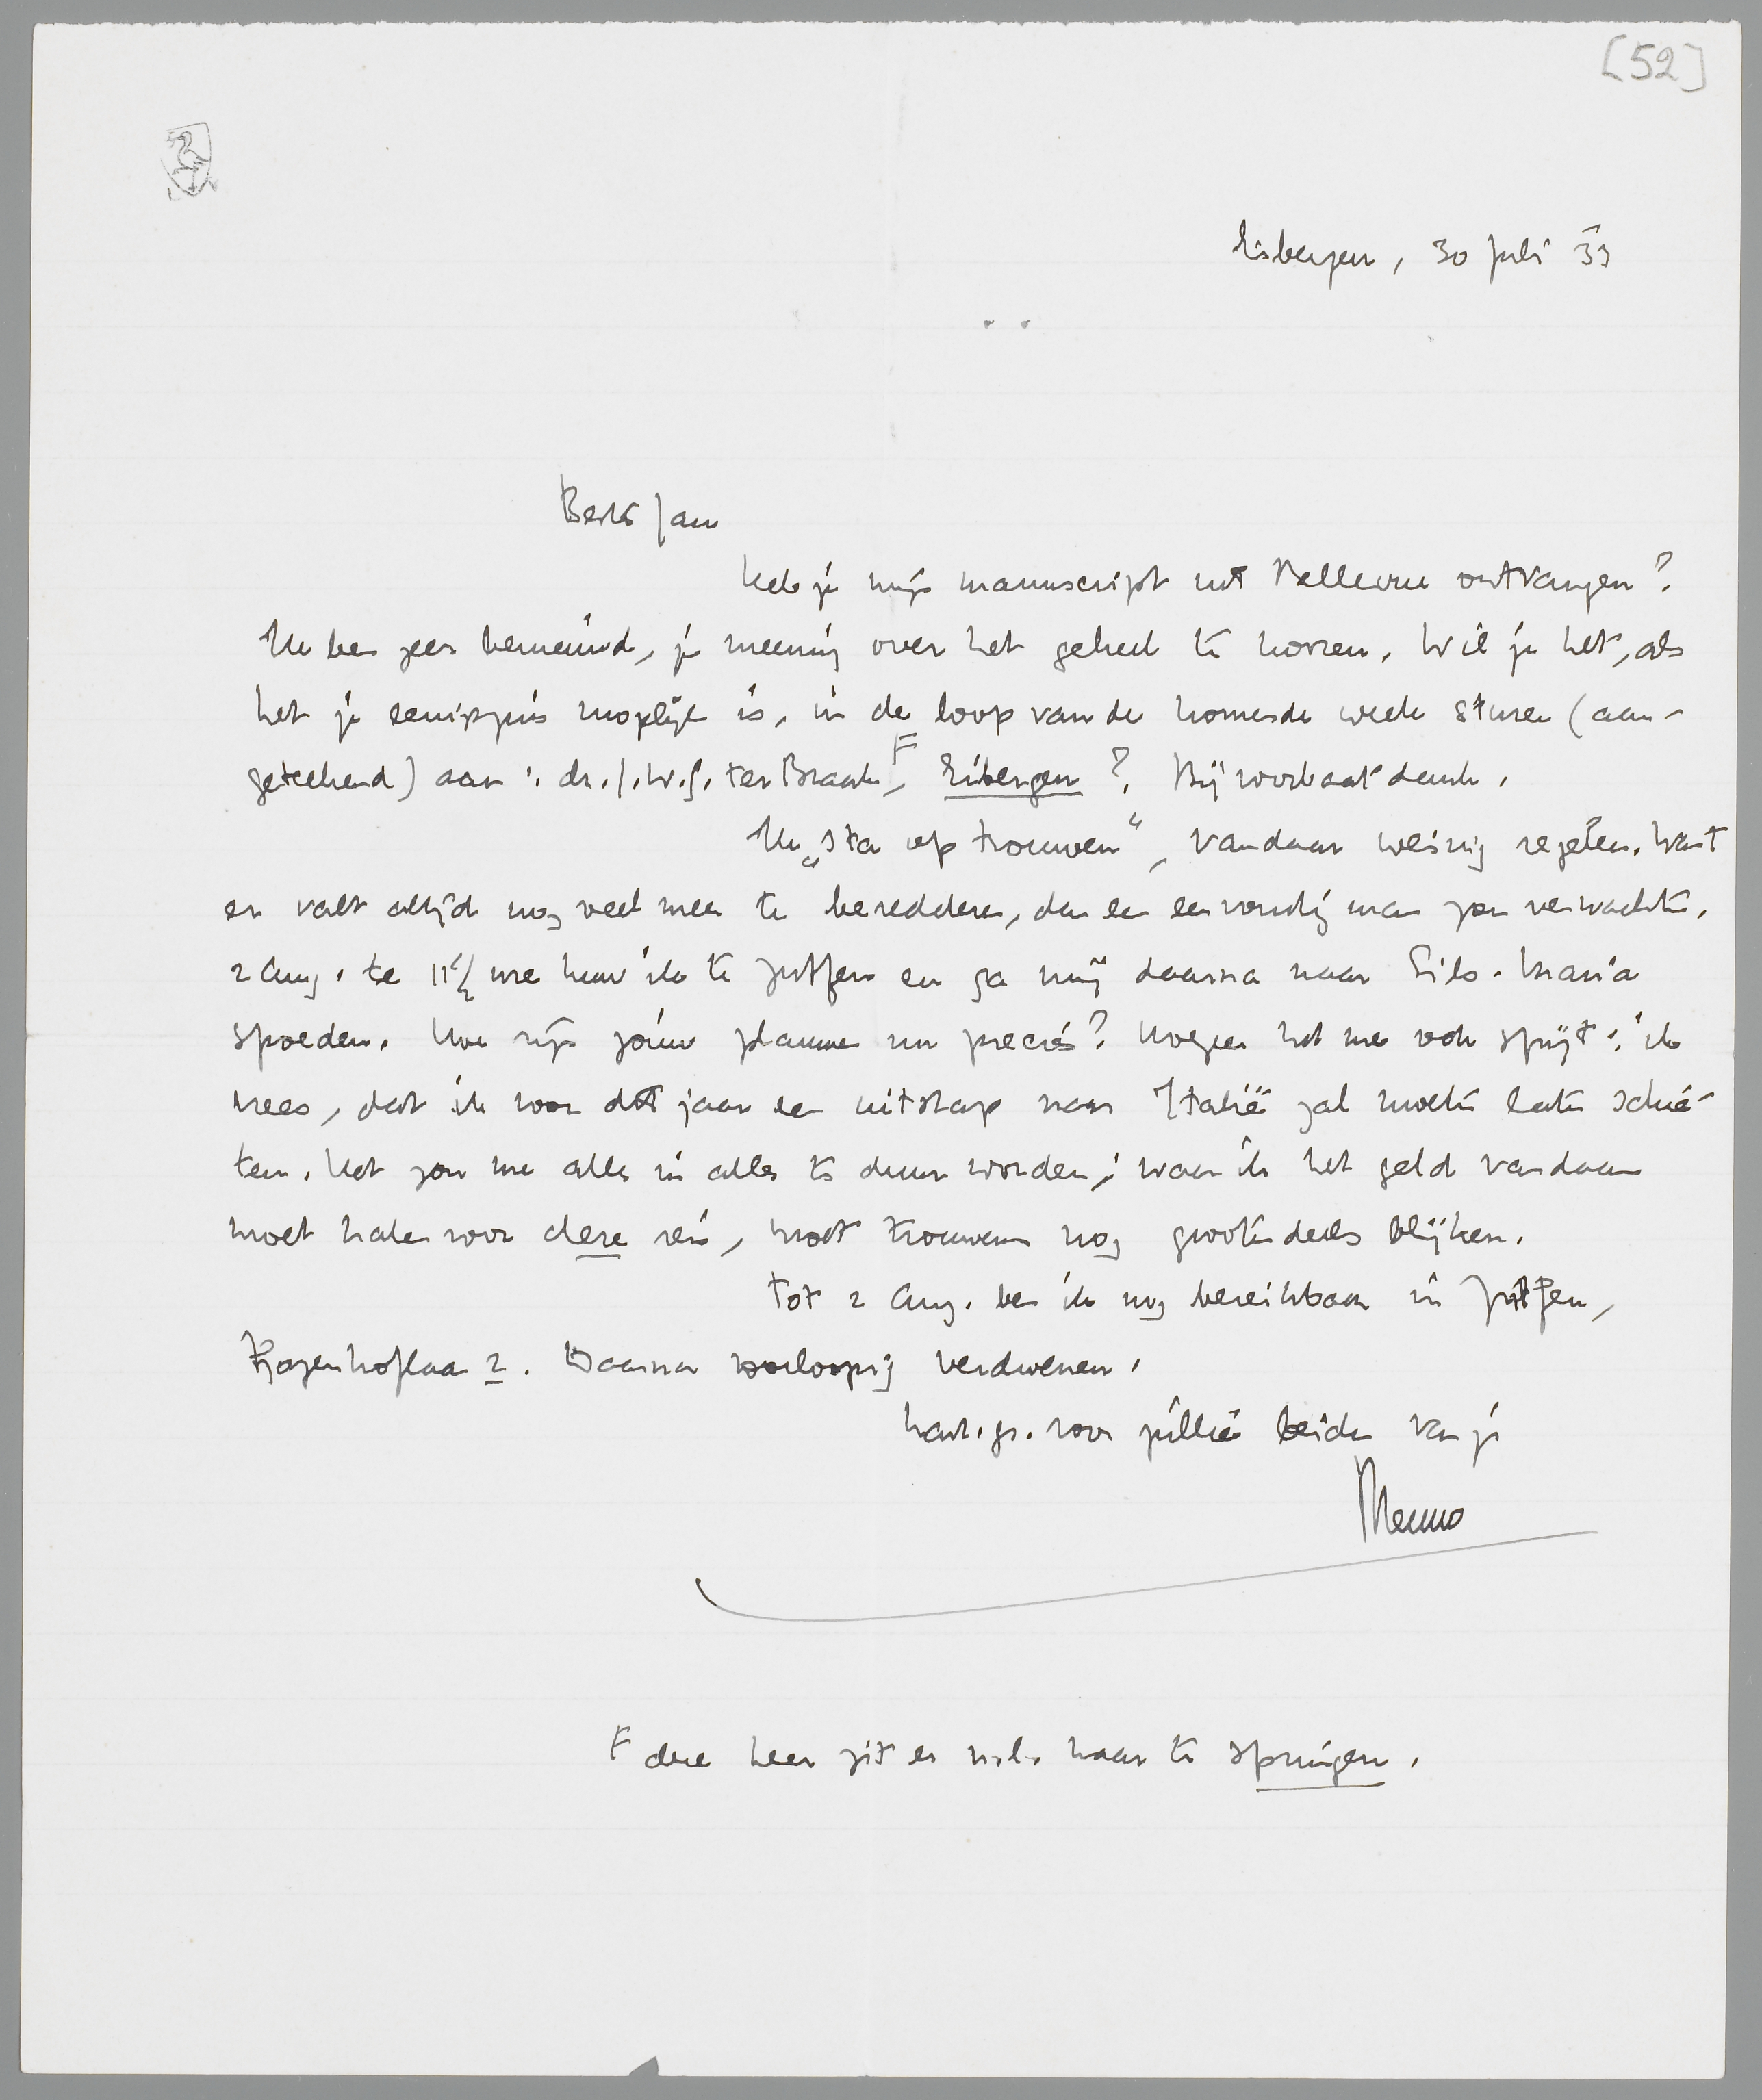 [52]
Eibergen, 30 Juli '33
Beste Jan
Heb je mijn manuscript uit Bellevue ontvangen?
Ik ben zeer benieuwd, je meening over het geheel te hooren. Wil je het, als
het je eenigszins mogelijk is, in de loop van de komende week sturen (aan-
geteekend) aan: dr. J.W.G. ter Braak F, Eibergen? Bij voorbaat dank.
Ik „sta op trouwen", vandaar weinig regelen. Want
er valt altijd nog veel meer te beredderen, dan een eenvoudig man zou verwachten.
2 Aug. te 11 1/2 ure huw ik te Zutfen en ga mij daarna naar Sils-Maria
spoeden. Hoe zijn jouw plannen nu precies? Hoezeer het me ook spijt: ik
vrees, dat ik voor dit jaar een uitstap naar Italië zal moeten laten schie-
ten. Het zou me alles in alles te duur worden; waar ik het geld vandaan
moet halen voor deze reis, moet trouwens nog grootendeels blijken.
Tot 2 Aug. ben ik nog bereikbaar in Zutfen,
Kozenhoflaan 2. Daarna voorloopig verdwenen.
Hart. gr. voor jullie beiden van je
Menno
F deze heer zit er n.l. naar te springen.